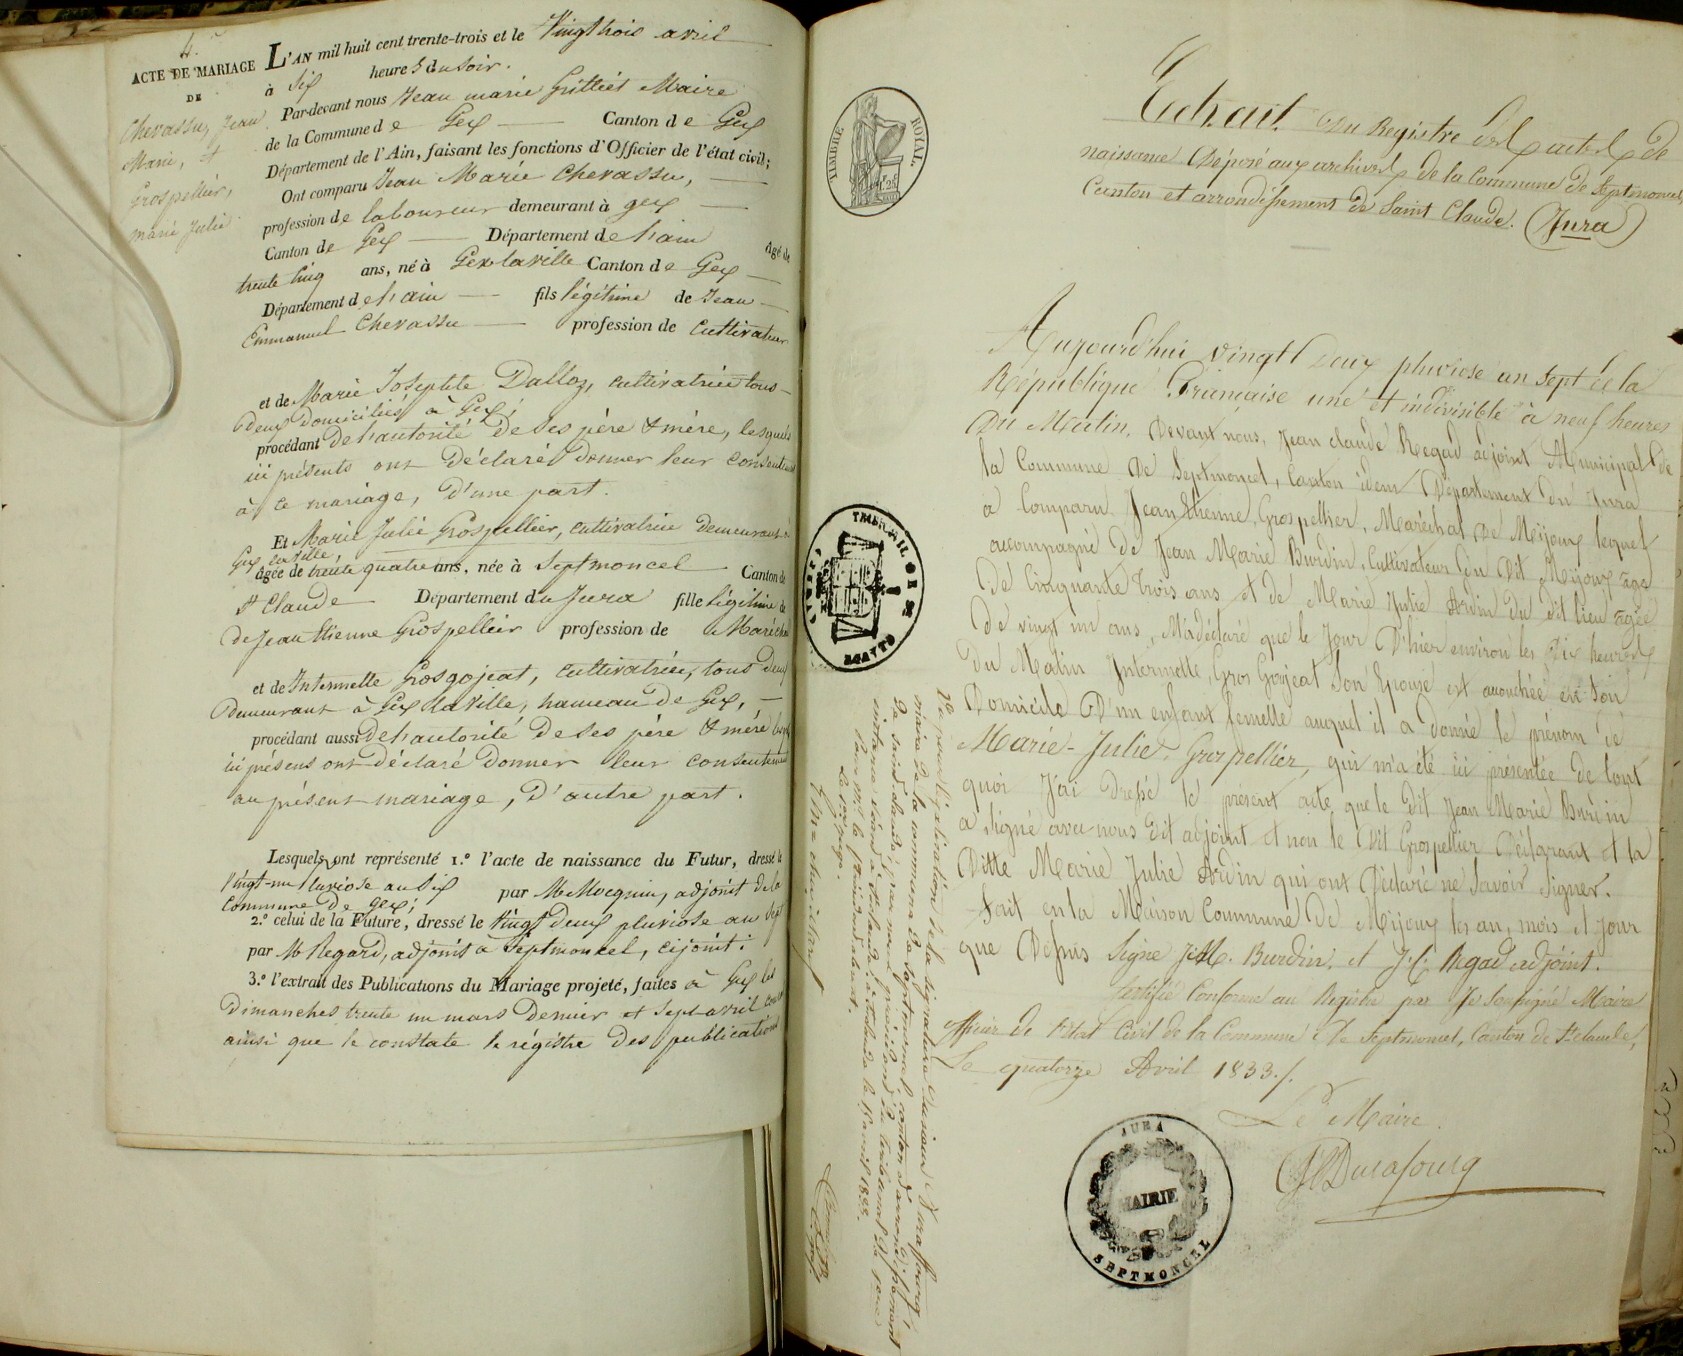 4.
ACTE DE MARIAGE
DE
Chevassu, Jean
Marie, et
Grospellier,
marie Julie
L'AN mil huit cent trente-trois et le Vingt trois avril
à Six heures du Soir.
Pardevant nous Jean marie Maire
de la Commune de Gex Canton de Gex
Département de l'Ain, faisant les fonctions d'Officier de l'état civil;
Ont comparu Jean Marie Chevassu,
profession de laboureur demeurant à gex
Canton de Gex Département de l'ain Agé de
trente cinq ans, né à Gex la ville Canton de Gex
Département de l'ain fils légitime de Jean
Emmanuel Chevassu profession de Cultivateur
et de Marie Josephte Dalloz, cultivatrice tous
deux domiciliés à Gex;
procédant de l'autorité de ses père & mère, lesquels
ici présents ont déclaré donner leur consentement
à ce mariage, d'une part.
Et Marie Julie Grospellier, cultivatrice demeurant à
Gex la ville,
agée de trente quatre ans, née à Septmoncel Canton de
St Claude Département du Jura fille légitime de
de Jean Etienne Grospellier profession de Maréchal
et de Intermette Grosgojeat, cultivatrice, tous deux
demeurant à Gex la Ville, hameau de Gex,
procédant aussi de l'autorité de ses père & mère
ici présens ont déclaré donner leur consentement
au présent mariage, d'autre part.
Lesquels ont représenté 1.° l'acte de naissance du Futur, dressé le
Vingt-un Pluviose an Six par Mr Mocquin, adjoint de la
Commune de Gex;
2.° celui de la Future, dressé le Vingt deux pluviose an Sept
par Mr Regard, adjoint à Septmoncel, cijoint;
3.° l'extrait des Publications du Mariage projeté, faites à Gex les
Dimanches trente un mars dernier et Sept avril
ainsi que le constate le régistre des publications
TIMBRE ROYAL.
Extrait du Registre des actes de
naissance Déposé aux archives de la Commune de Septmoncel,
Canton et arrondissement de Saint Claude. (Jura)
Aujourd'hui vingt deux pluviose an Sept de la
République Française une et indivisible à neuf heures
Du Matin, Devant nous, Jean claude Regad adjoint Municipal de
la Commune de Septmoncel, Canton idem Département du Jura
a Comparu Jean Etienne, Grospellier, Maréchal de Mijoux lequel
accompagné de Jean Marie Burdin, Cultivateur du dit Mijoux agé
de Cinquante trois ans et de Marie Julie Ardin du dit lieu agée
de vingt un ans, M'a déclaré que le Jour D'hier environ les Dix heures
Du Matin Intermette, Gros Gojeat Son Epouse est accouchée en Son
Domicile D'un enfant femelle auquel il a donné le prénom de
Marie-Julie, Grospellier, qui m'a été ici présentée de tout
quoi J'ai Dressé le présent acte que le Dit Jean Marie Burdin
a signé avec nous Dit adjoint et non le Dit Grospellier Déclarant et la
Ditte Marie Julie Ardin qui ont Déclaré ne Savoir Signer.
Fait en la Maison Commune De Mijoux les an, mois et Jour
que Dessus Signé J.M. Burdin, et J.C. Regad adjoint.
Certifié Conforme au Registre par Je Soussigné Maire
officier de l'état Civil de la Commune de Septmoncel, Canton de St Claude,
Le quatorze Avril 1833./.
Le Maire.
Durafourg
JURA
MAIRIE
SEPTMONCEL